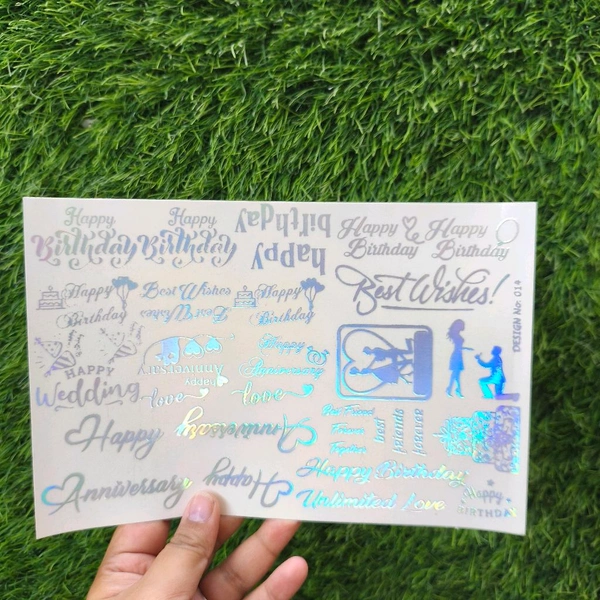 Happy
Birthday
Happy
Birthday
happy
birthday
Happy
Birthday
Happy
Birthday
Happy
Birthday
Best Wishes
Best Wishes
Happy
Birthday
Best Wishes!
DESIGN No: 01
HAPPY
Wedding
Happy
Anniversary
love
Happy
Anniversary
love
Happy
Anniversary
Best Friend
Forever
Together
best
friends
forever
Happy Birthday
Anniversary
Happy
Unlimited Love
Happy
BIRTHDAY